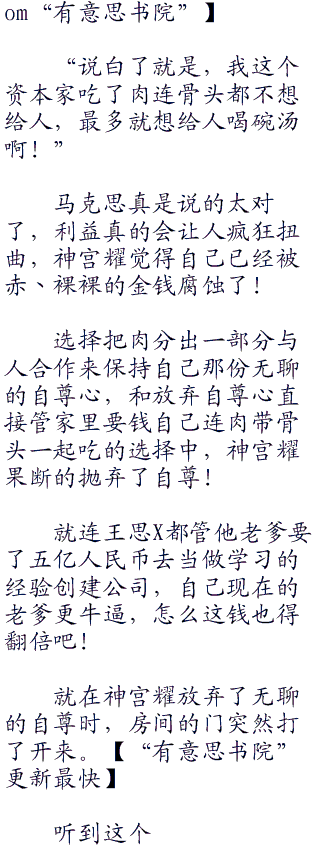 om“有意思书院”】
“说白了就是，我这个
资本家吃了肉连骨头都不想
给人，最多就想给人喝碗汤
啊！”
马克思真是说的太对
了，利益真的会让人疯狂扭
曲，神宫耀觉得自己已经被
赤、裸裸的金钱腐蚀了！
选择把肉分出一部分与
人合作来保持自己那份无聊
的自尊心，和放弃自尊心直
接管家里要钱自己连肉带骨
头一起吃的选择中，神宫耀
果断的抛弃了自尊！
就连王思X都管他老爹要
了五亿人民币去当做学习的
经验创建公司，自己现在的
老爹更牛逼，怎么这钱也得
翻倍吧！
就在神宫耀放弃了无聊
的自尊时，房间的门突然打
了开来。【“有意思书院”
更新最快】
听到这个